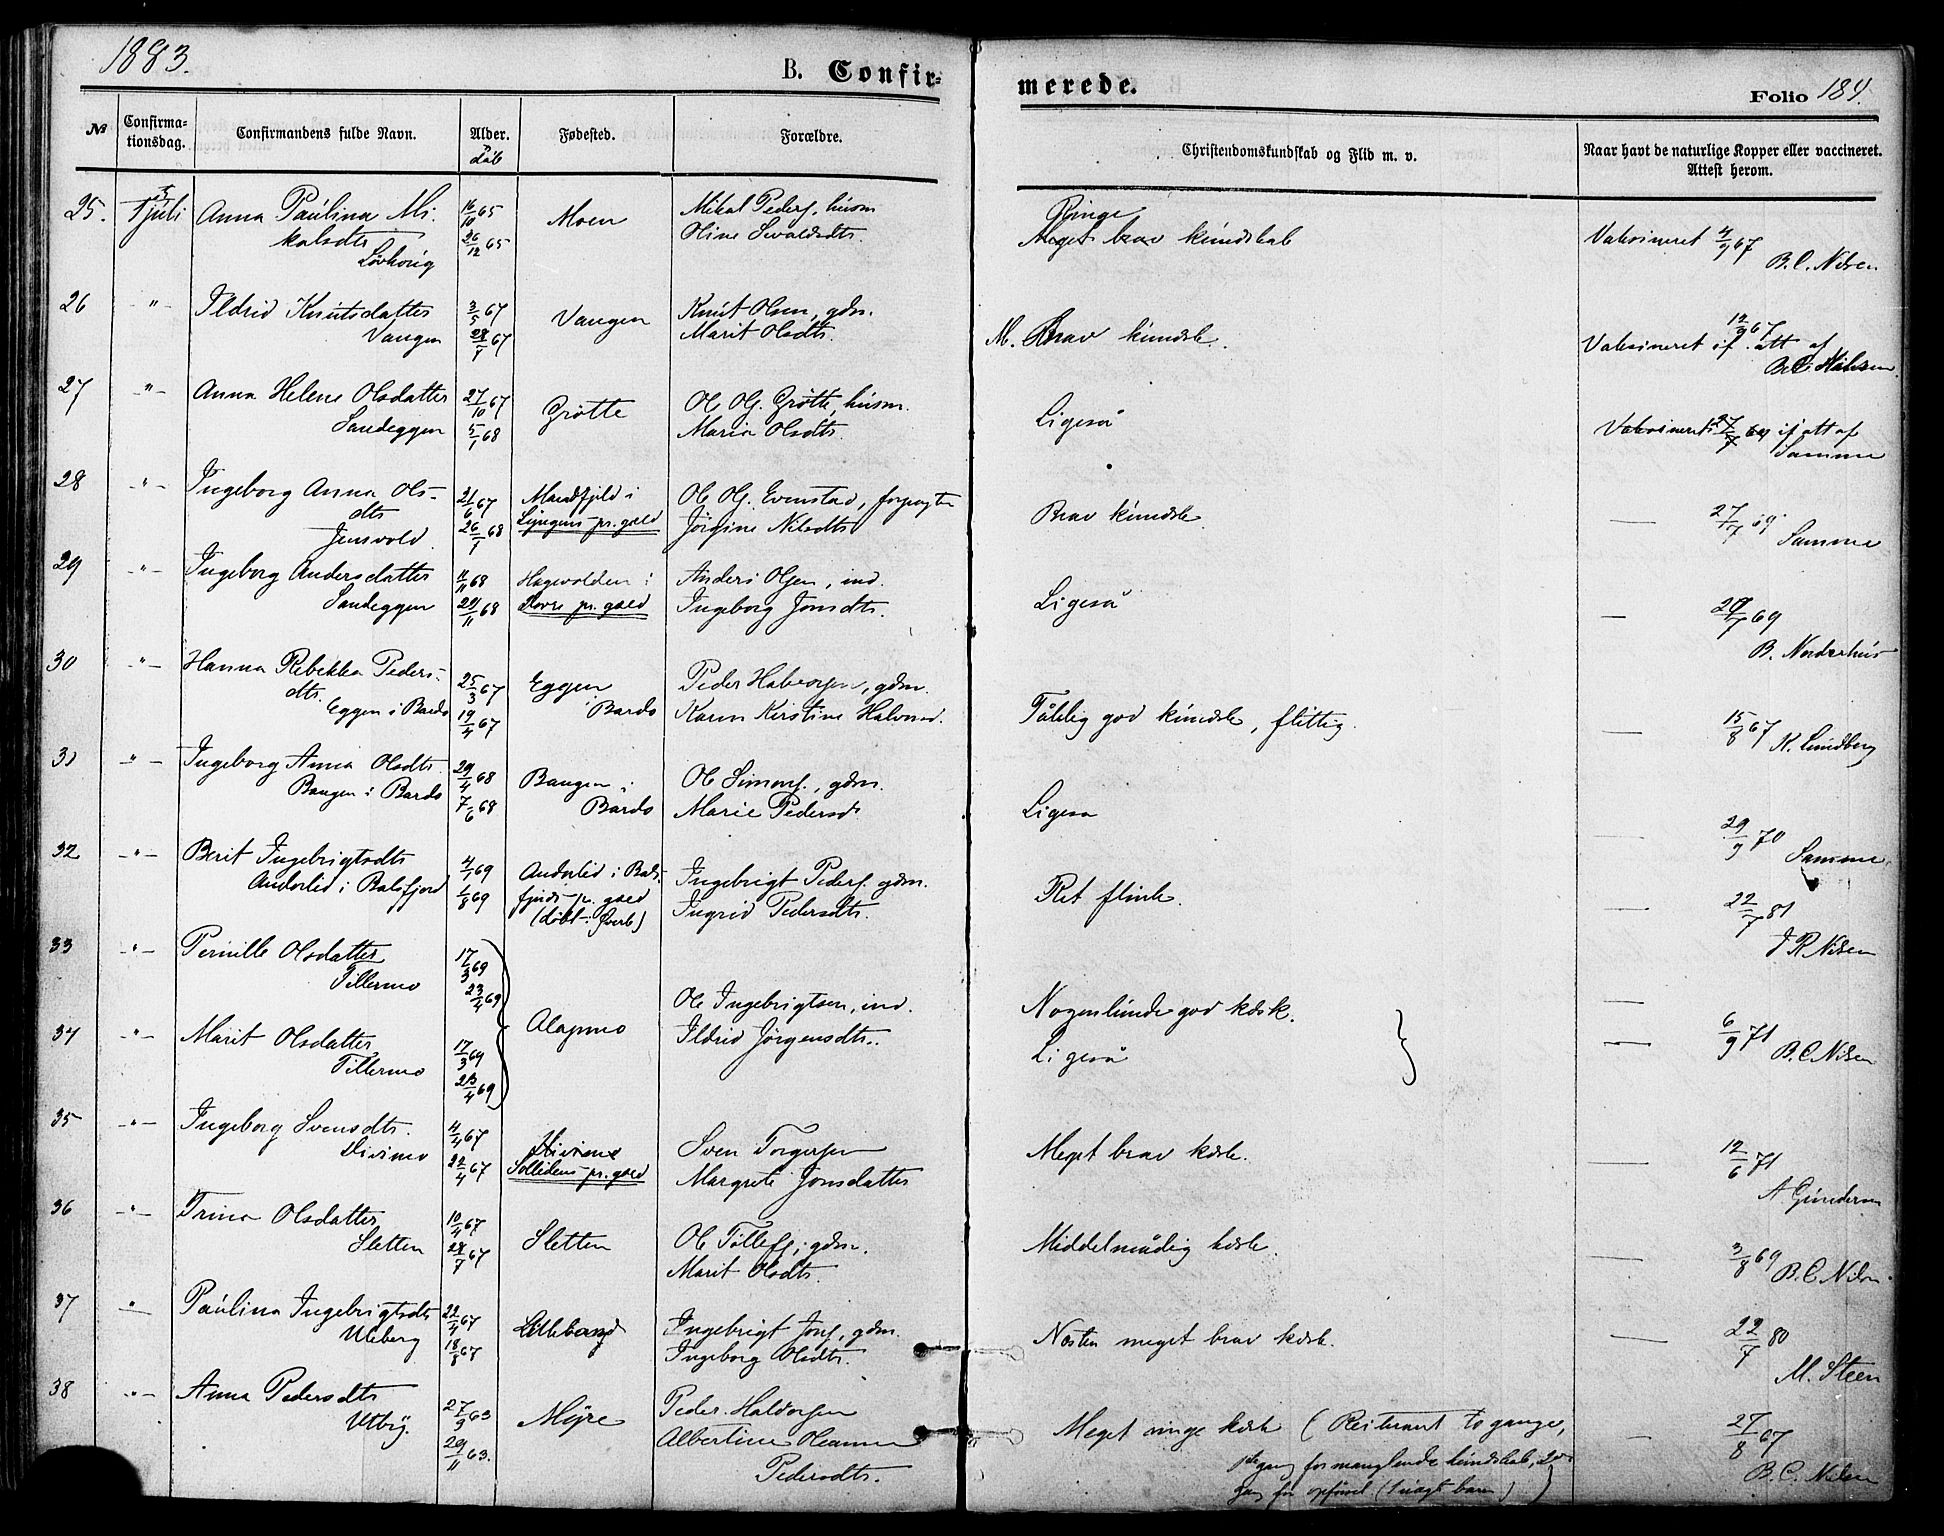 1883.
B. Confir-
merede.
Folio 184.
№
Confirma-
tionsdag.
Confirmandens fulde Navn.
Alder.
Døb
Fødested.
Forældre.
Christendomskundskab og Flid m. v.
Naar havt de naturlige Kopper eller vaccineret.
Attest herom.
25.
juli
Anna Paulina Mi-
kalsdtr
16/10 65
26/12 65
Moen
Mikal Peders., husm
Oline Sivaldsdtr.
Ringe
Meget brav kundskab
Vaksineret 4/9 67
B. C. Nilsen
26
-"-
Ildrid Knutsdatter
Vangen
3/5 67
Vangen
Knut Olsen, gdm.
Marit Olsdtr.
M. Brav kundsk.
12/9 67
Vaksineret if. att af
B. C. Nilsen
27
-"-
Anna Helene Olsdatter
Sandeggen
27/10 67
5/1 68
Grötte
Ole Ols. Grötte, husm.
Maria Olsdtr.
Ligeså
Vaksineret 27/7 69 if att af
Samme
28
-"-
Ingeborg Anna Ols-
dtr
Jensvold
21/6 67
26/1 68
Maridfjeld i
pr. gjeld
Ole Ols. Evenstad, forpagter
Jörgine Nilsdtr
Brav kundsk.
— 27/7 69
Samme
29
-"-
Ingeborg Andersdatter
Sandeggen
11 68
29/11 68
Hagevolden i
Dovre pr. gjeld
Anders Olsen, ind.
Ingeborg Jonsdtr.
Ligeså
— 29/7 69
B. Norderhus
30
-"-
Hanna Rebekka Peders-
dtr.
Eggen i Bardo
25/3 67
19/4 67
Eggen
Bardo
Peder Halvorsen, gdm.
Karen Kirstine Halvorsd.
Tålelig god kundsk, flittig.
— 15/8 67
K. Lundberg
31
-"-
Ingeborg Anna Olsdtr.
Bangen i Bardo
29/4 68
7/6 68
Bangen i
Bardo
Ole Simons., gdm.
Marie Pedersd.
Ligeså
— 29/9 70
Samme
32
-"-
Berit Ingebrigtsdtr
Anderlid i Balsfjord
4/1 69
1/8 69
Anderlid i Bals-
fjords pr. gjeld
(döbt i Överb)
Ingebrigt Peders. gdm.
Ingrid Pedersdtr.
Ret flink.
— 22/7 81
J R Nilsen
33
-"-
Pernille Olsdatter
Tillermo
17/3 69
23/4 69
Alapmo
Ole Ingebrigtsen, ind.
Ildrid Jörgensdtr.
Nogenlunde god kdsk.
—
34
-"-
Marit Olsdatter
Tillermo
17/3 69
23/4 69
Ligeså
— 6/9 71
B. C. Nilsen
35
-"-
Ingeborg Svensdtr.
Divimo
4/4 67
22/4 67
Divimo
pr. gjeld
Sven Torgersen
Margrete Jonsdatter
Meget brav kdsk.
— 12/6 71
A Gundersen
36
-"-
Trina Olsdatter
Sletten
10/4 67
28/7 67
Sletten
Ole Tollefs., gdm.
Marit Olsdtr.
Middelmådig kdsk.
— 3/8 69
B. C. Nilsen
37
-"-
Paulina Ingebrigtsdtr
Uleberg
22/4 67
18/8 67
Ingebrigt Jons., gdm.
Ingeborg Olsdtr.
Næsten meget brav kdsk.
— 22/7 80
M. Steen
38
-"-
Anna Pedersdtr
Utby.
27/9 63
29/11 63.
Myre
Peder Haldorsen
Albertine Hanna
Pedersdtr.
Meget ringe kdsk (Restituert to gange,
1ste gang for manglende kundskab, 2den
gang for opförsel (1 uægt barn) )
— 27/8 67
B. C. Nilsen